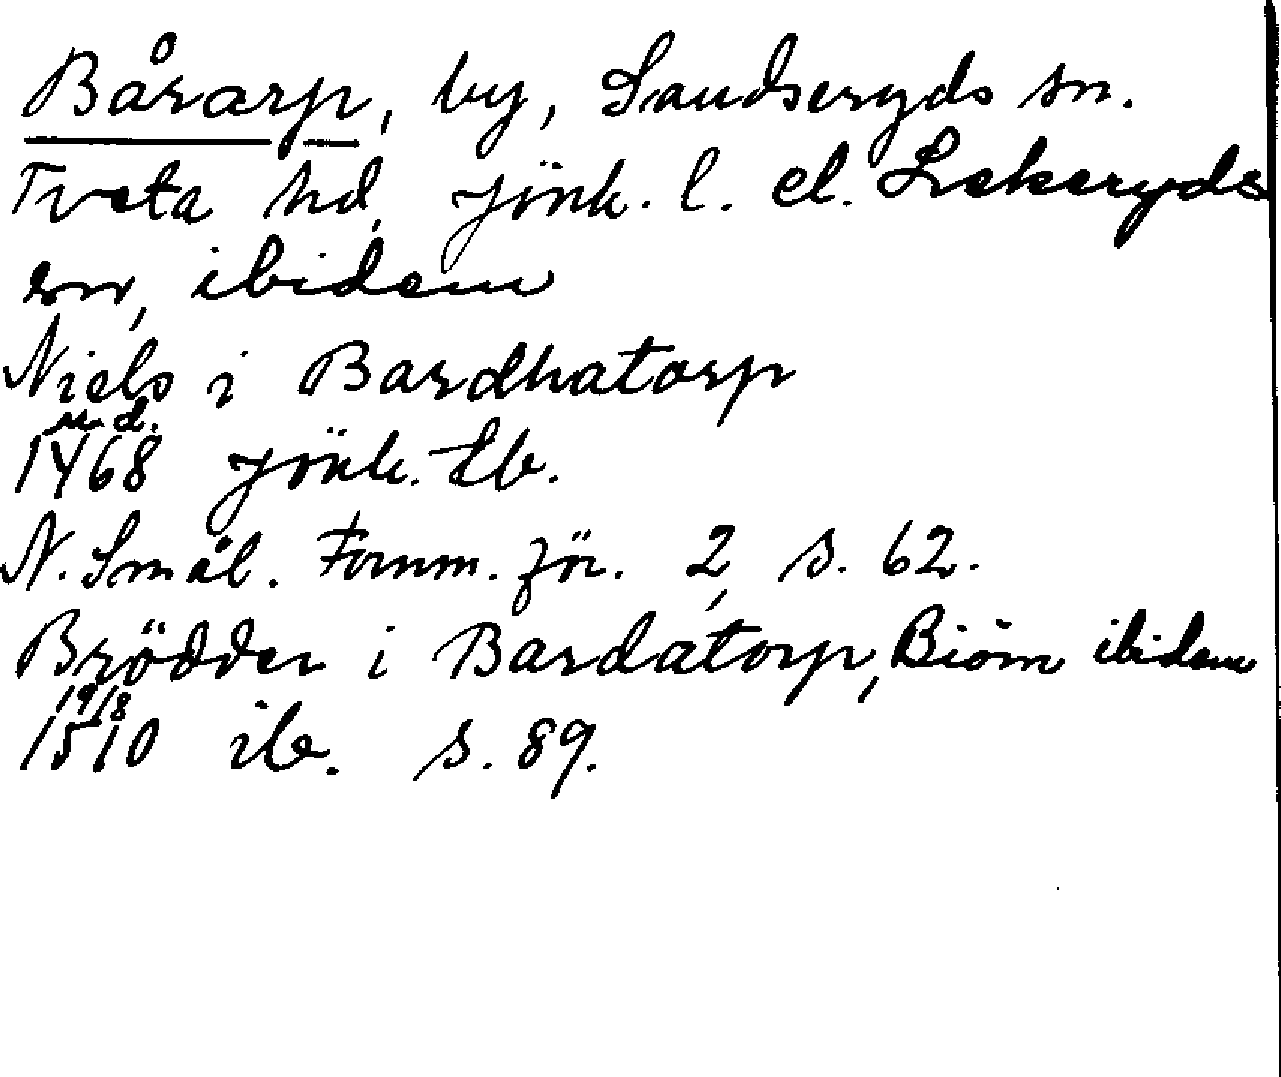 Bårarp, by, Sandseryds sn.
Tveta hd, Jönk. l. el. Lekeryds
sn, ibidem
Niels i Bardhatorp
u.d.
1468 Jönk. Tb.
N. Smål. Fornm. för. 2, s. 62.
Brödder i Bardatorp, Biörn ibidem
19/8
1510 ib. s. 89.